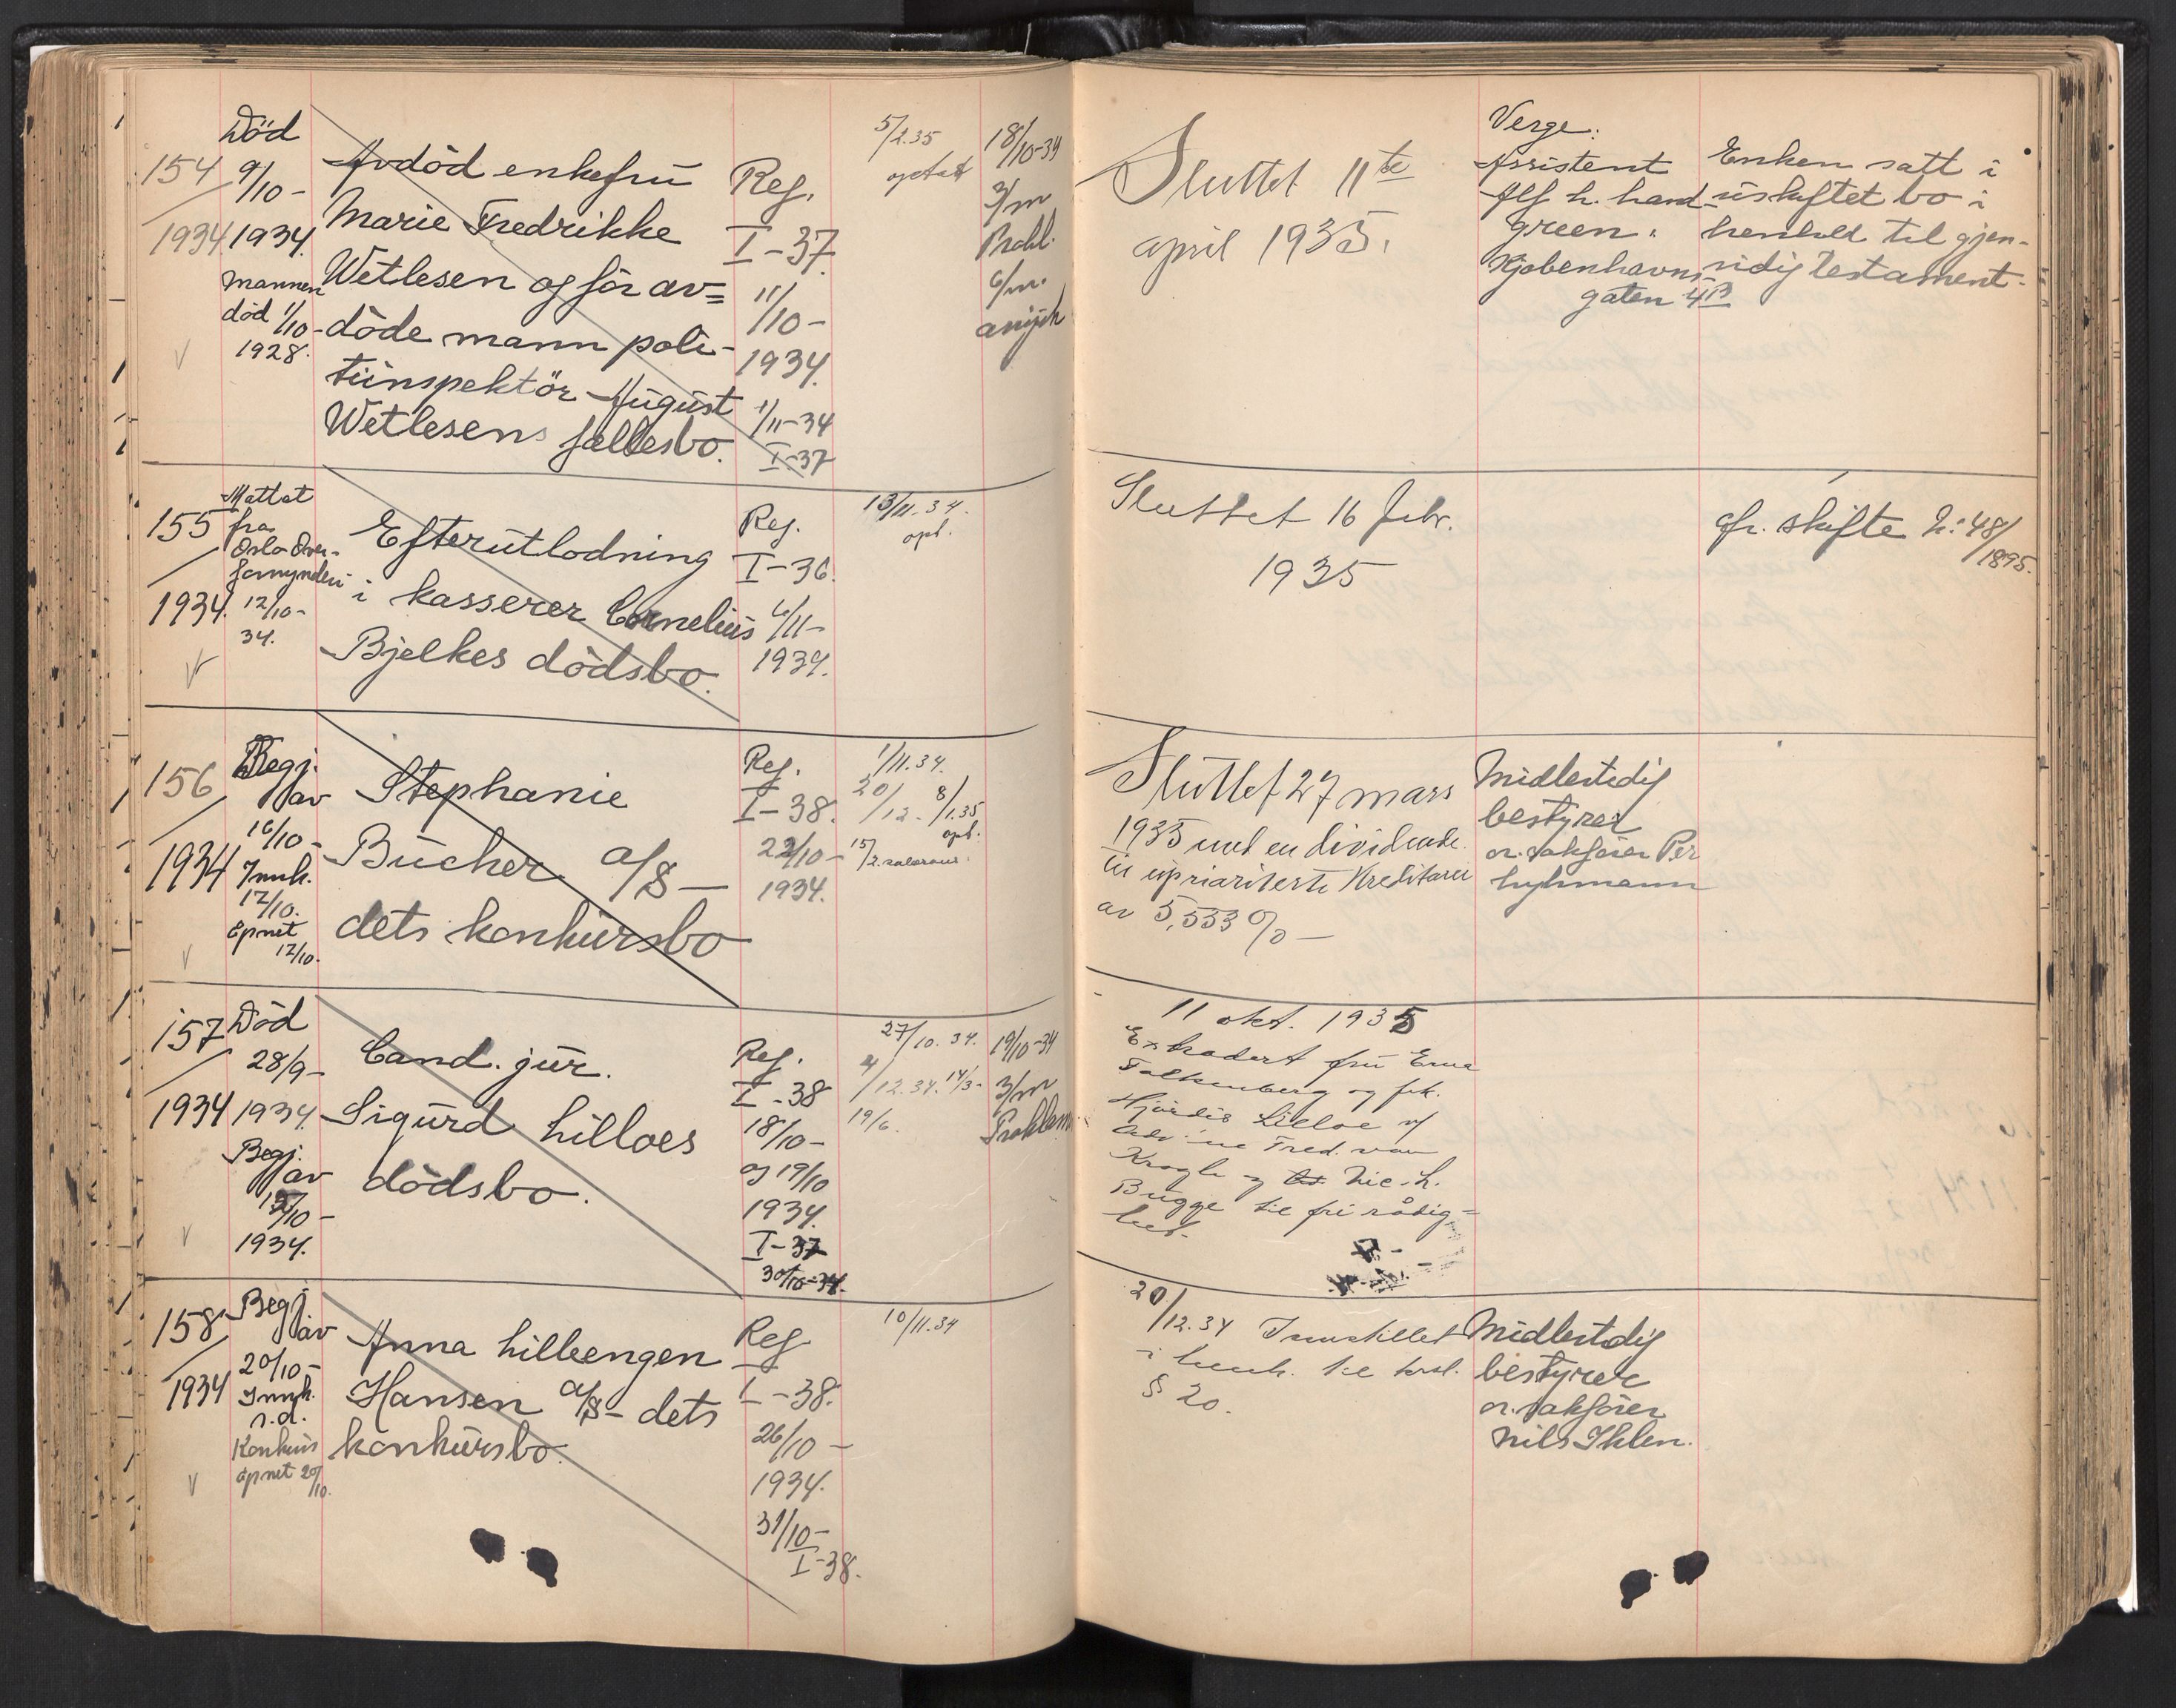 154
1934
Död
9/10-
1934.
Mannen
död 1/10-
1928.
Avdöd enkefru
Marie Fredrikke
Wetlesen og før av=
döde mann poli-
tiinspektör August
Wetlesens fællesbo.
Reg.
I-37.
11/10-
1934.
1/11-34
I-37
5/2.35
optat
18/10-34
3/m
Prokl.
6/m.
Sluttet 11te
april 1935.
Verge:
Assistent
Alf L. Land-
green.
Kjøbenhavns-
gaten 4B
Enken satt i
uskiftet bo i
henhold til gjen-
sidig testament.
155
1934.
Mottat
fra
Oslo Over-
formynderi
12/10-
34.
Efterutlodning
i kasserer Cornelius
Bjelkes dödsbo.
Reg.
I-36.
6/11-
1934.
13/11.34.
opt.
Sluttet 16 febr.
1935
cfr. skifte L: 48/
1895.
156
1934
Begj.
av
16/10-
Innk.
17/10.
Åpnet
17/10.
Stephanie
Bücher a/s-
dets konkursbo
Reg.
I-38.
22/10-
1934.
1/11.34.
20/12. 8/1.35
opt.
15/2.
Sluttet 27 mars
1935 med en dividende
til upriariterte Kreditorer
av 5,533 % -
Midlertidig
bestyrer
or. sakfører Per
Lyhmann
157
1934
Död
28/9-
1934.
Begj.
av
/10-
1934.
Cand. jur.
Sigurd Lilloes
dödsbo.
Reg.
I-38
18/10-
og 19/10
1934.
I-37
30/10-34.
27/10.34.
4/12.34. 14/3-
19/6.
19/10-34
3/m
Proklam
11 okt. 1935
Extradert fru Erna
Falkenberg og frk.
Hjördis Lilloe v/
adv:ne Fred. van
Krogh og Nic. L.
Bugge til fri rådig=
het.
158
1934
Begj.
av
20/10-
Innk.
s.d.
Konkurs
åpnet 20/10.
Anna Lilleengen
Hansen a/s- dets
konkursbo.
Reg.
I-38.
26/10-
1934.
31/10-
I-38.
10/11.34
20/12.34 Innstillet
i henh. til krsl.
§ 20.
Midlertidig
bestyrer
or. sakfører
Nils Ihlen.